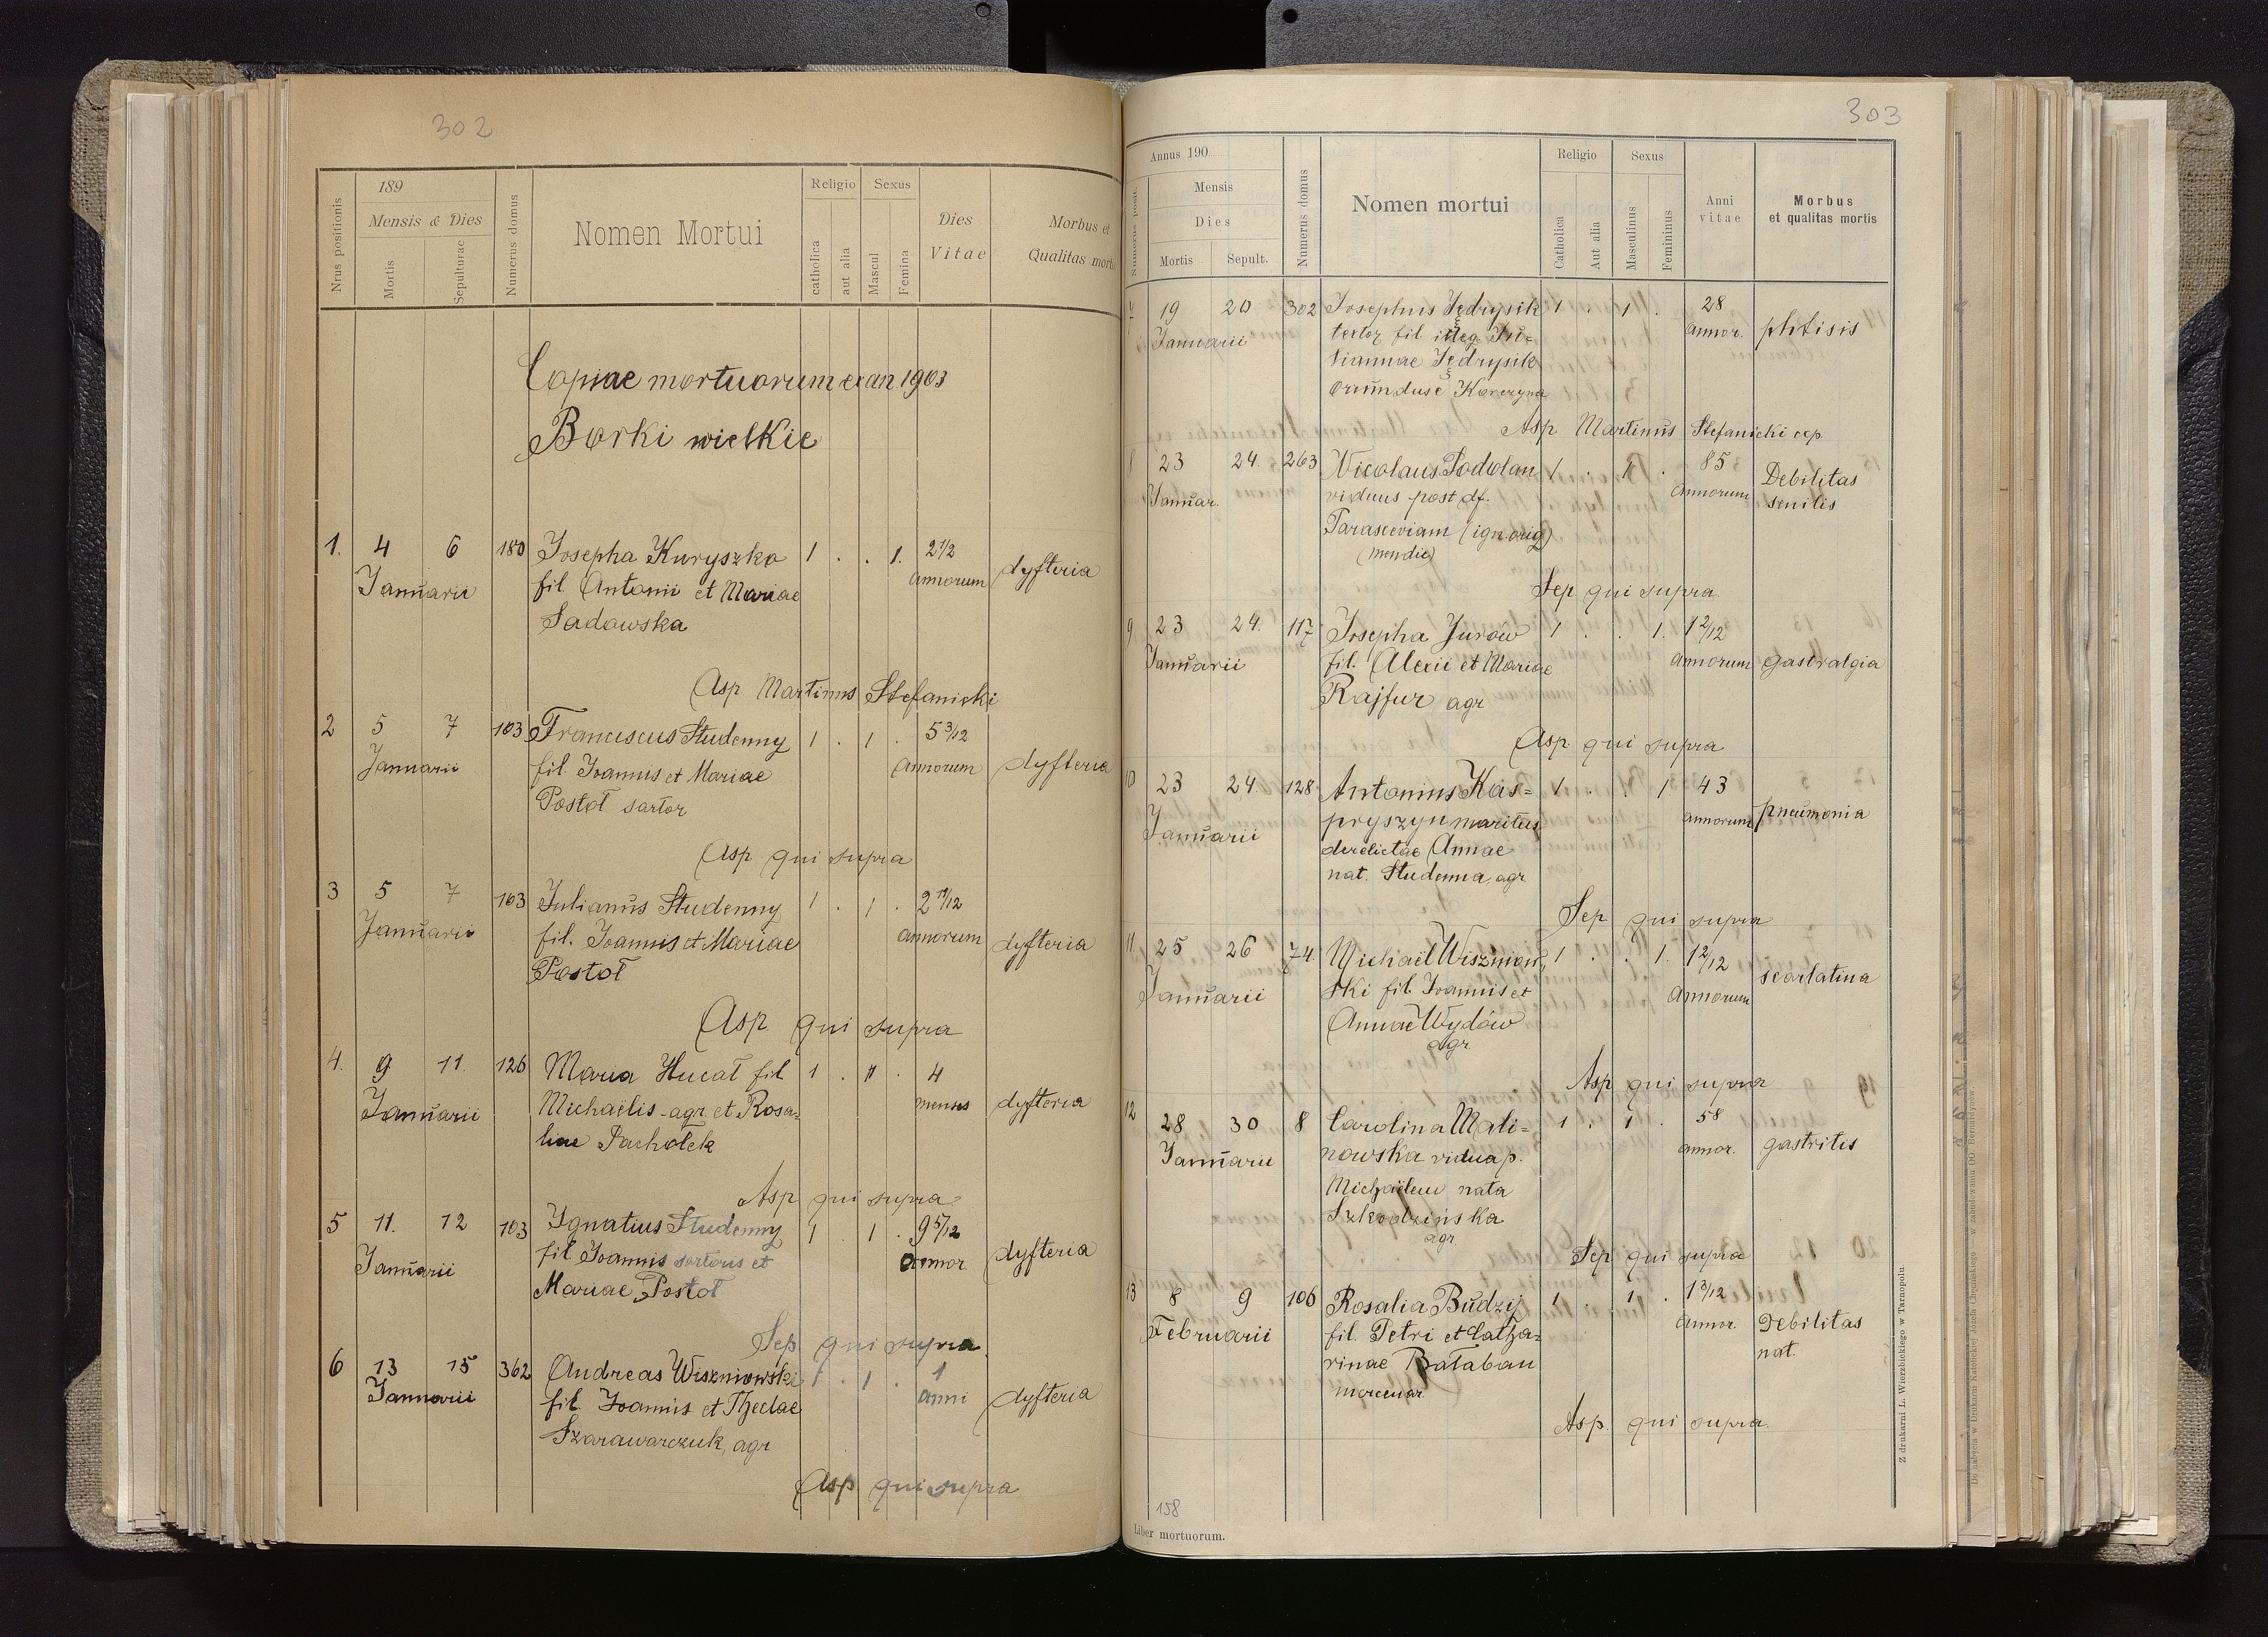 302
189
Nrus positionis
Mensis & Dies
Mortis
Sepulturae
Numerus domus
Nomen Mortui
Religio
catholica
aut alia
Sexus
Mascul
Femina
Dies
Vitae
Morbus et
Qualitas mortis
Copiae mortuorum ex an 1903
Borki wielkie
1. 4 6 180 Josepha Kuryszko 1 . . 1. 2 1/2
Januarii fil Antonii et Mariae annorum dyfteria
Sadowska
Asp Martinus Stefanicki
2 5 7 103 Franciscus Studenny 1 . 1 . 5 3/12
Januarii fil Joannis et Mariae annorum dyfteria
Postoł sartor
Asp qui supra
3 5 7 103 Julianus Studenny 1 . 1 . 2 11/12
Januarii fil. Joannis et Mariae annorum dyfteria
Postoł
Asp qui supra
4. 9 11. 126 Maria Hucał fil 1 . 1 . 4
Januarii Michaëlis agr et Rosa= menses dyfteria
liae Pachołek
Asp qui supra
5 11. 12 103 Ignatius Studenny 1 . 1 . 9 5/12
Januarii fil Joannis sartoris et annor. dyfteria
Mariae Postoł
Sep qui supra
6 13 15 362 Andreas Wiszniowski 1 . 1 . 1
Januarii fil Joannis et Theclae anni dyfteria
Szarawarczuk, agr
Asp qui supra
303
Annus 190
Numerus posit.
Mensis
Dies
Mortis
Sepult.
Numerus domus
Nomen mortui
Religio
Catholica
Aut alia
Sexus
Masculinus
Femininus
Anni
vitae
Morbus
et qualitas mortis
7 19 20 302 Josephus Jędrysik 1 . 1 . 28
Januarii textor fil illeg annor. phtisis
Jędrysik
oriundus e Korczyna
Asp Martinus Stefanicki cop
8 23 24. 263 Nicolaus Podolan 1 . 1 . 85
Januar. viduus post df. annorum Debilitas
senilis
Parasceviam (ign. orig)
(mendic)
Sep qui supra
9 23 24. 117 Josepha Jurow 1 . . 1. 1 2/12
Januarii fil. Alexii et Mariae annorum gastralgia
Rajfur agr
Asp qui supra
10 23 24. 128 Antonius Kas= 1 . . 1 43
Januarii pryszyn maritus annorum pneumonia
derelictae Annae
nat. Studenna, agr
Sep qui supra
11 25 26 74. Michaël Wiszniow 1 . . 1. 1 2/12
Januarii ski fil Joannis et annorum scarlatina
Annae Wydów
agr
Asp qui supra
12 28 30 8 Carolina Mali= 1 . 1 . 58
Januarii nowska vidua p. annor. gastritis
Michaëlem nata
Szkodzińska
agr
Sep qui supra
13 8 9 106 Rosalia Budzij 1 . 1 . 1 3/12
Februarii fil. Petri et Catha= annor. Debilitas
nat.
rinae Bałaban
mercenar
Asp. qui supra.
158
Liber mortuorum.
Z drukarni L. Wierzbickiego w Tarnopolu.